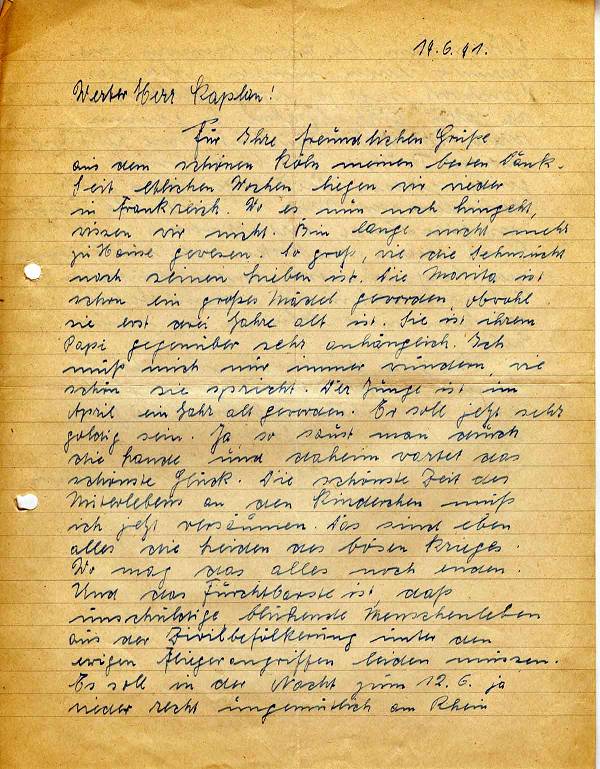 14.6.41.
Werter Herr Kaplan!
Für Ihre freundlichen Grüße
aus dem schönen Köln meinen besten Dank.
Seit etlichen Wochen liegen wir wieder
in Frankreich. Wo es nun noch hingeht,
wissen wir nicht. Bin lange nicht mehr
zu Hause gewesen. So groß, wie die Sehnsucht
nach seinen Lieben ist. Die Marita ist
schon ein großes Mädel geworden, obwohl
sie erst drei Jahre alt ist. Sie ist ihrem
Papi gegenüber sehr anhänglich. Ich
muß mich nur immer wundern, wie
schön sie spricht. Der Junge ist im
April ein Jahr alt geworden. Er soll jetzt sehr
goldig sein. Ja, so saust man durch
die Lande und daheim wartet das
schönste Glück. Die schönste Zeit des
Miterlebens an den Kinderchen muß
ich jetzt versäumen. Das sind eben
alles die Leiden des bösen Krieges.
Wo mag das alles noch enden.
Und das Fürchtbarste ist, daß
unschuldige blühende Menschenleben
aus der Zivilbefölkerung unter den
ewigen Fliegerangriffen leiden müssen.
Es soll in der Nacht zum 12.6. ja
wieder recht ungemütlich am Rhein